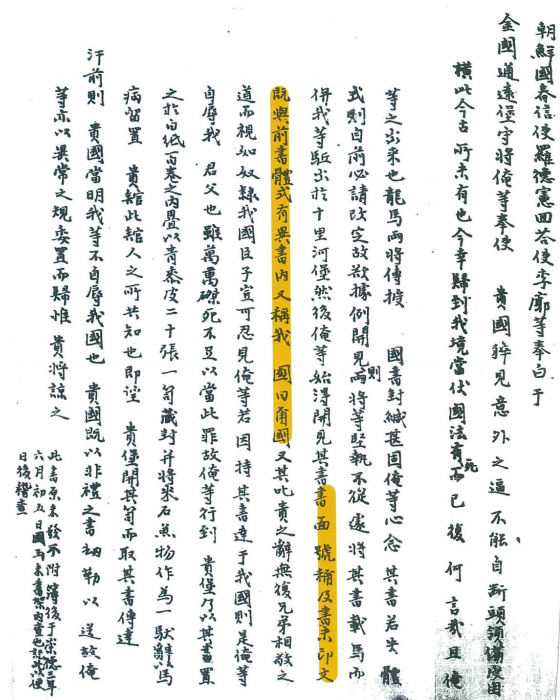 朝鮮國春信使羅德憲回答使李廓等奉白于
金國通遠堡守將俺等奉使 貴國猝見意外之逼不能自斷頭領備受困
橫此今古所未有也今幸歸到我境當伏國法有死而已復何言哉且俺
等之出來也龍馬兩將傳授 國書封緘甚固俺等心念其書若失體
式則自前必請改定故欲據例開見則兩將等堅執不從遂將其書載馬而
併我等驅出於十里河堡然後俺等始得開見其書書面號稱及書末印文
既與前書體式有異書內又稱我 國曰爾國又其叱責之辭無復兄弟相敬之
道而視如奴隸我國臣子豈可忍見俺等若因持其書達于我國則是俺等
自辱我 君父也雖萬萬磔死不足以當此罪故俺等行到 貴堡乃以其書置
之於白紙百卷之內疊以青黍皮二十張一匌藏封并將米石魚物作為一馱辭以馬
病留置 貴館此館人之所共知也即望 貴堡開其匌而取其書傳達
汗前則 貴國當明我等不自辱我國也 貴國既以非禮之書劫勒以送故俺
等亦以異常之規委置而歸惟 貴將諒之
此書原未發不附簿後于崇德三年
六月初五日國馬末書架內查出記此以便
日後稽查